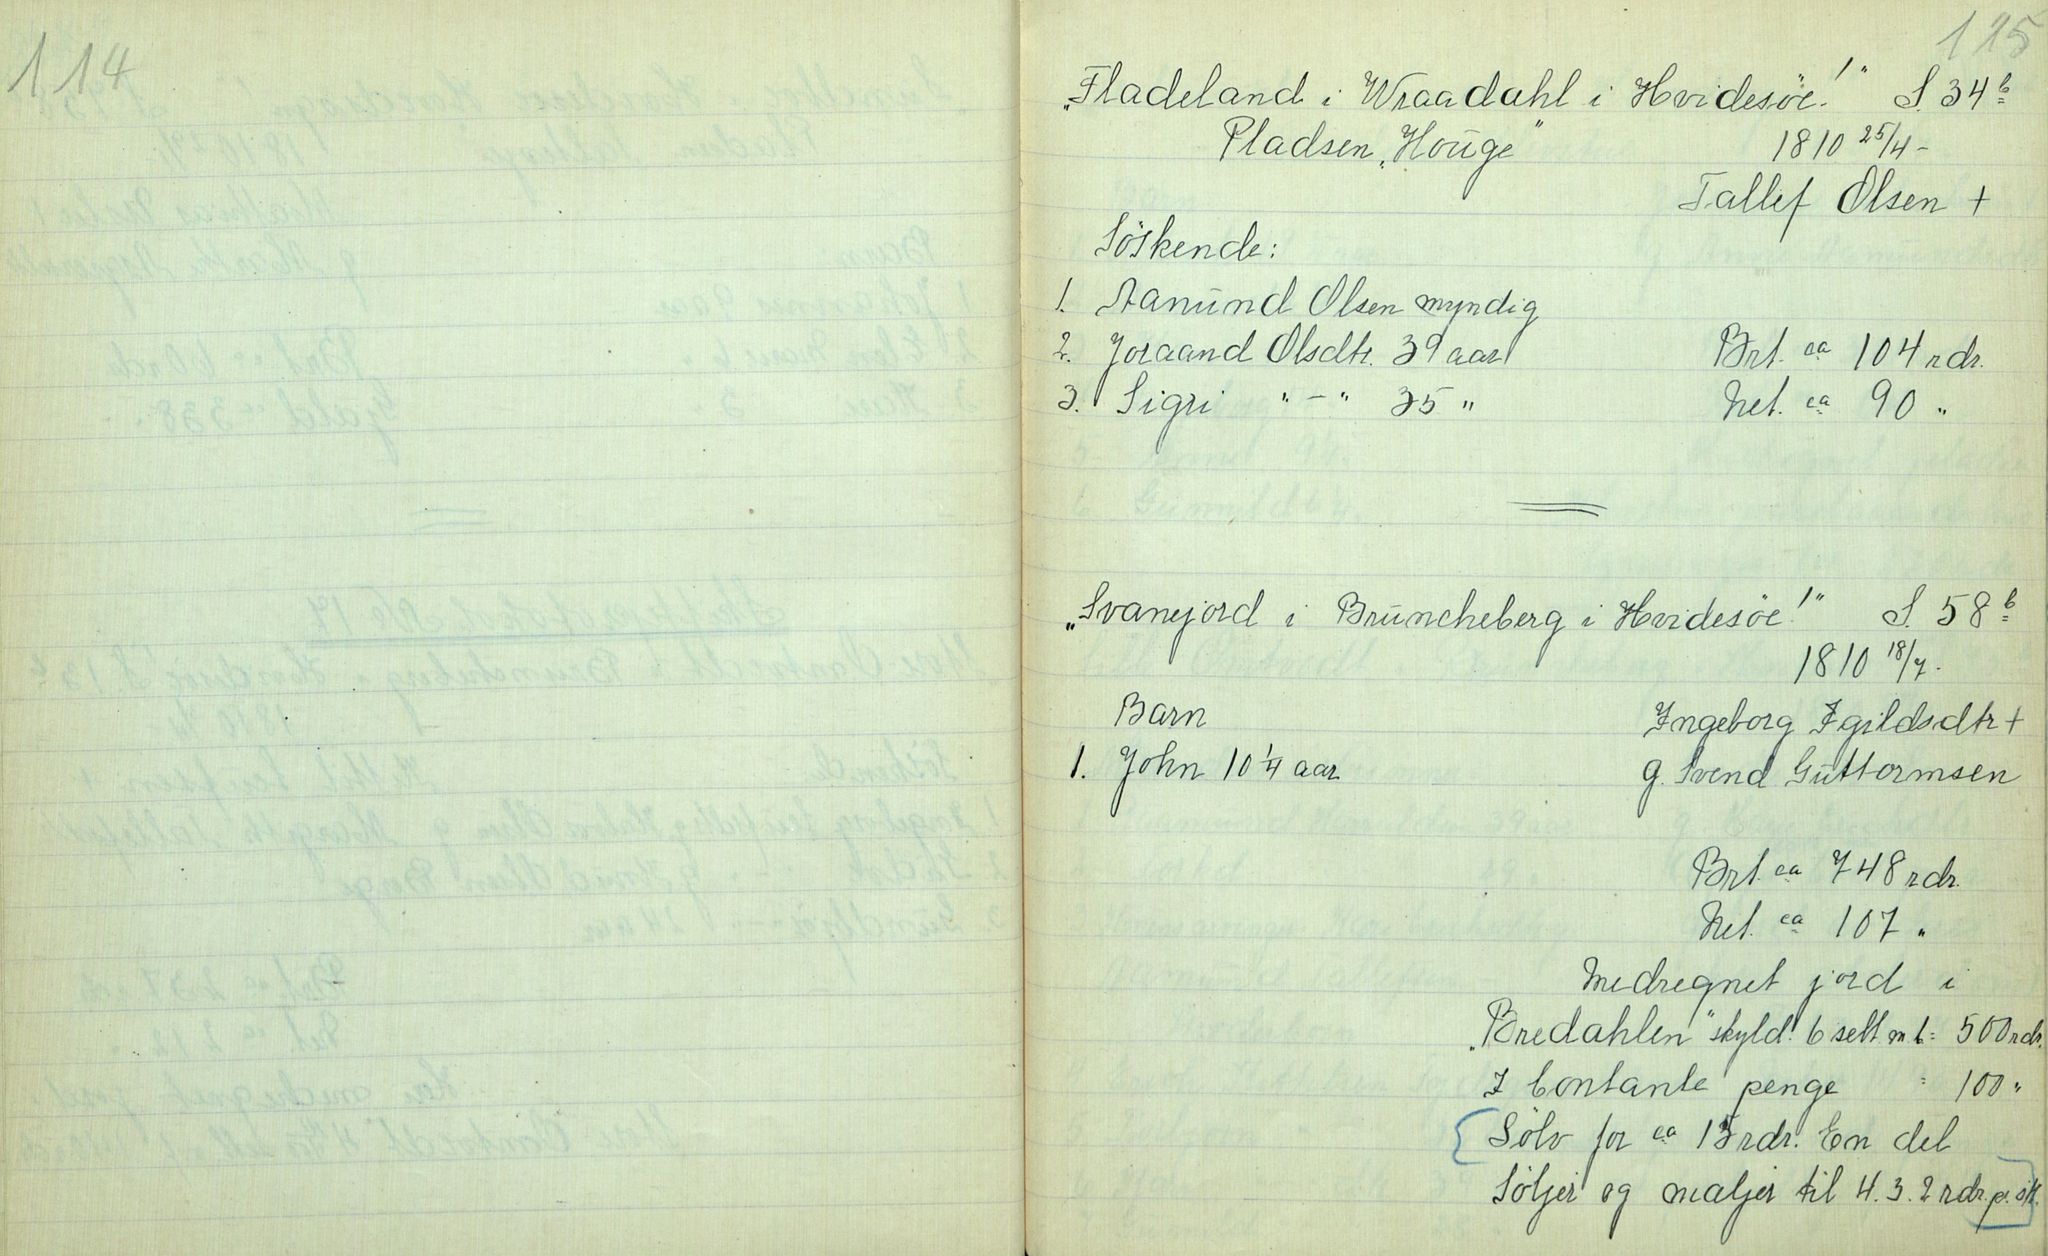 114
115
„Fladeland i Wraadahl i Hvidesöe!" S. 34 b
Pladsen „Houge" 1810 25/4 -
Tallef Olsen +
Söskende:
1. Aanund Olsen myndig
2. Joraand Olsdtr. 39 aar Brt. ca 104 rdr.
3. Sigri " - " 35 " Net. ca 90 "
„Svanejord i Bruncheberg i Hvidesöe!" S. 58 b
1810 18/7.
Barn Ingeborg Igildsdtr +
1. John 10 1/4 aar g. Svend Guttormsen
Brt. ca 748 rdr.
Net. ca 107 "
Medregnet jord i
„Bredahlen" skyld. 6 sett. m. l = 500 rdr.
I Contante penge = 100 "
Sölv for ca 13 rdr. En del
Söljer og maljer til 4. 3. 2 rdr. p. stk.